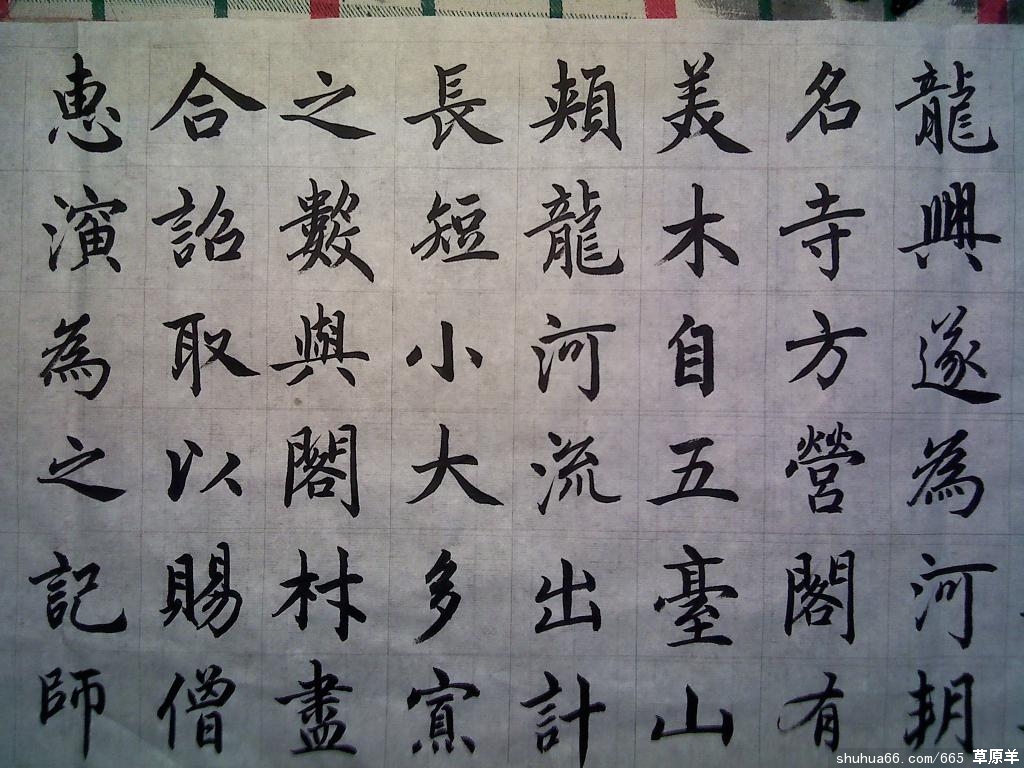 龍興遂為河朔
名寺方營閣有
美木自五臺山
頰龍河流出計
長短小大多寡
之數與閣材盡
合詔取以賜僧
惠演為之記師
shuhua66.com/665 草原羊